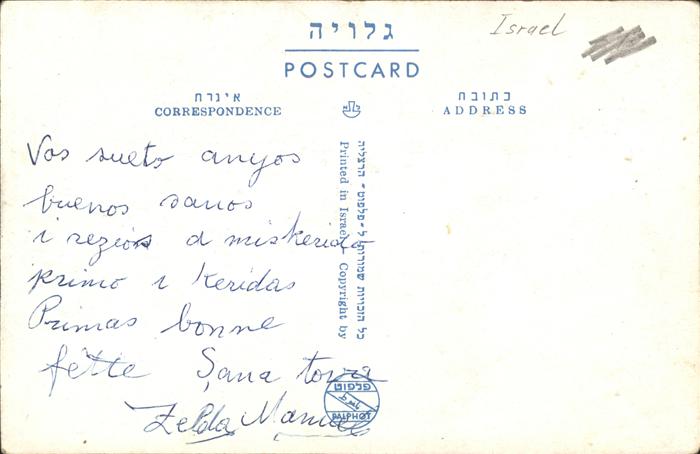 Israel
גלויה
POSTCARD
איגרת
CORRESPONDENCE
כתובת
ADDRESS
Vos sueto anyos
buenos sanos
i rezios d miskerida
primo i keridas
Primas bonne
fette Şana tova
Zelda Manuel
כל הזכויות שמורות ל"פלפוט" הרצליה
Printed in Israel - Copyright by
פלפוט
PALPHOT